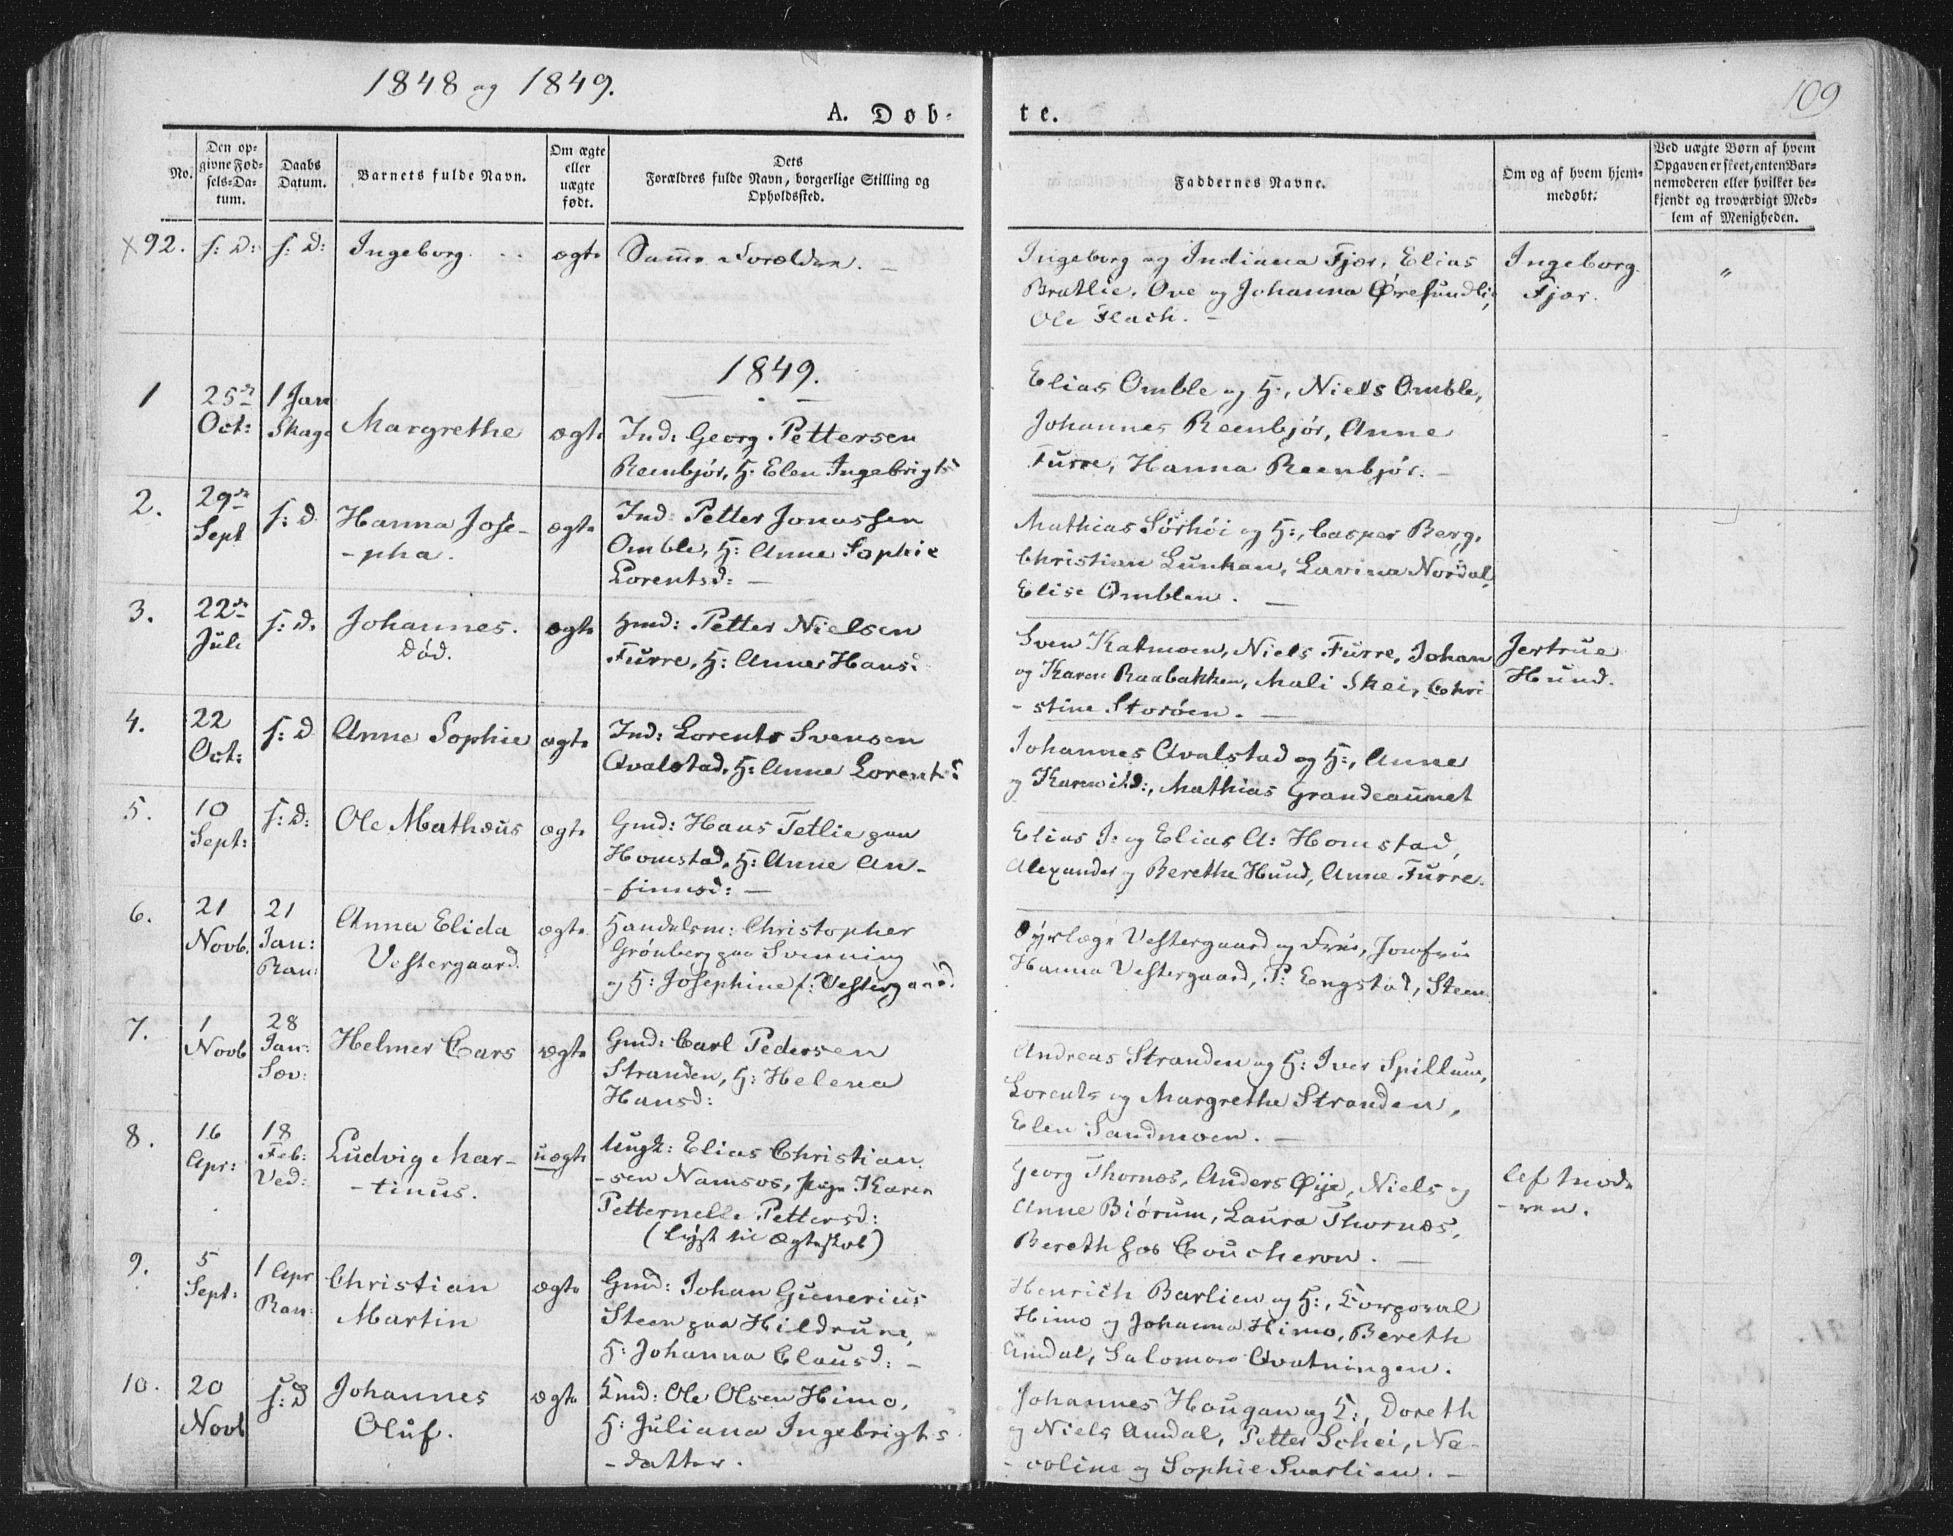 1848 og 1849.
109
A. Døb-
te.
No.
Den op-
givne Fød-
sels-Da-
tum.
Daabs
Datum.
Barnets fulde Navn.
Om ægte
eller
uægte
født.
Dets
Forældres fulde Navn, borgerlige Stilling og
Opholdssted.
Faddernes Navne.
Om og af hvem hjem-
medøbt.
Ved uægte Børn af hvem
Opgaven er skeet, enten Bar-
nemoderen eller hvilket be-
kjendt og troværdigt Med-
lem af Menigheden.
×92. s: D: s: D: Ingeborg. ægte Samme Forældre. —
Ingeborg og Indiana Fjær, Elias
Bratlie, Ove og Johanna Øresundli,
Ole Flach. —
Ingeborg
Fjær.
"
1849.
1
25de
Oct:
1 Jan
Skage
Margrethe
ægte
Ind: Georg Pettersen
Reenbjør, H: Elen Ingebrigts
Elias Omble og H:, Niels Omble,
Johannes Reenbjør, Anne
Furre, Hanna Reenbjør. —
2.
29de
Sept
s: D.
Hanna Jose-
-pha.
ægte
Ind: Petter Jonassen
Omble, H: Anne Sophie
Lorentsd: —
Mathias Sørhøi og H:, Casper Berg,
Christian Lunkan, Lavina Nordal,
Elise Omblen. —
3.
22de
Juli
s: D.
Johannes.
Død.
ægte
Hmd: Petter Nielsen
Furre, H: Anne Hans:
Sven Katmoen, Niels Furre, Johan
og Karen Raabakken, Mali Skei, Chri
-stine Storøen. —
Jertrue
Hund.
4.
22
Oct:
s: D
Anne Sophie
ægte
Ind: Lorents Svensen
Qvalstad, H: Anne Lorents:
Johannes Qvalstad og H:, Anne
og Karen ibd:, Mathias Grandeaunet
5.
10
Sept:
s: D:
Ole Mathæus
ægte
Gmd: Hans Tetlie paa
Homstad, H: Anne An-
-finnsd: —
Elias J: og Elias A: Homstad,
Alexander og Berethe Hund, Anne Furre.
6.
21
Novb.
21
Jan:
Ran:
Anna Elida
Vestergaard.
ægte
Handelsm: Christopher
Grønberg paa Svenning
og H: Josephine f: Vestergaard.
Dyrlæge Vestergaard og Frue, Jomfrue
Hanna Vestergaard, P: Engstad, Steen
7.
1
Novb
28
Jan:
Sæv:
Helmer Cars
ægte
Gmd: Carl Pedersen
Stranden, H: Helena
Hansd:
Andreas Stranden og H: Iver Spillum,
Lorents og Margrethe Stranden,
Elen Sandmoen. —
8.
16
Apr:
18
Feb:
Ved:
Ludvig Mar-
-tinus.
uægte
Ungk: Elias Christian
-sen Namsos, Pige Karen
Petternelle Pettersd:
(Lyst til Ægteskab)
Georg Thornæs, Anders Øije, Niels og
Anne Biørum, Laura Thornæs,
Bereth hos Coucheron. —
Af Mode
-ren.
9.
5
Sept:
1 Apr
Ran:
Christian
Martin
ægte
Gmd: Johan Gunerius
Steen paa Hildrum,
H: Johanna Clausd: —
Henrich Barlien og H:, Corporal
Himo og Johanna Himo, Bereth
Amdal, Salomon Qvatningen.
10.
20
Novb
s: D
Johannes
Oluf.
ægte
Gmd: Ole Olsen Himo,
H: Juliana Ingebrigts
-datter.
Johannes Hougan og H:, Doreth
og Niels Amdal, Petter Schei, Na-
-coline og Sophie Svarlien. —